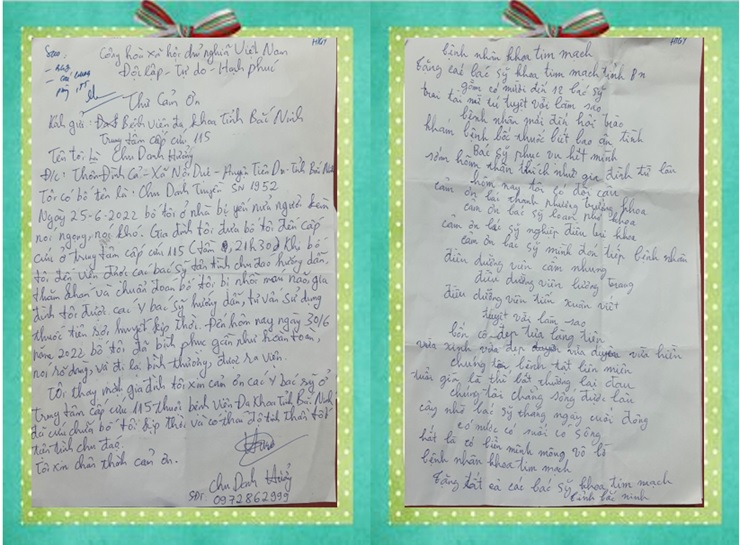 HIGT
Sao:
Cộng hòa xã hội chủ nghĩa Việt Nam
Độc lập - Tự do - Hạnh phúc
Thư Cảm Ơn
Kính gửi: Bệnh viện đa khoa tỉnh Bắc Ninh
Trung tâm cấp cứu 115
Tên tôi là Chu Danh Hưởng
Đ/c: Thôn Đình Cả - Xã Nội Duệ - Huyện Tiên Du - Tỉnh Bắc Ninh
Tôi có bố tên là: Chu Danh Truyền SN 1952
Ngày 25-6-2022 bố tôi ở nhà bị yếu nửa người kèm
nói ngọng, nói khó. Gia đình tôi đưa bố tôi đến cấp
cứu ở trung tâm cấp cứu 115 (tầm 21h30) Khi bố
tôi đến viện được các bác sỹ tận tình chu đáo hướng dẫn.
thăm khám và chuẩn đoán bố tôi bị nhồi máu não, gia
đình tôi được các Y bác sỹ hướng dẫn, tư vấn sử dụng
thuốc tiêu sợi huyết kịp thời. Đến hôm nay ngày 30/6
năm 2022 bố tôi đã bình phục gần như hoàn toàn,
nói rõ dàng, và đi lại bình thường, được ra viện.
Tôi thay mặt gia đình tôi xin cảm ơn các Y bác sỹ ở
trung tâm cấp cứu 115 thuộc bệnh viện Đa Khoa Tỉnh Bắc Ninh
đã cứu chữa bố tôi kịp thời và có thái độ tinh thần tốt
tận tình chu đáo.
Tôi xin chân thành cảm ơn.
Chu Danh Hưởng
SĐT: 0972862999
HIGT
bệnh nhân khoa tim mạch
Tặng các bác sỹ khoa tim mạch tỉnh BN
gồm có mười đến 12 bác sỹ
trai tài nữ tú tuyệt vời làm sao
bệnh nhân mới đến hỏi trào
khám bệnh bốc thuốc biết bao ân tình
Bác sỹ phục vụ hết mình
sớm hôm thân thích như gia đình từ lâu
hôm nay tôi có đôi câu
cảm ơn bác thanh phương trưởng khoa
cảm ơn bác sỹ loan phó khoa
cảm ơn bác sỹ nghiệp điều trị khoa
cảm ơn bác sỹ minh đón tiếp bệnh nhân
điều dưỡng viên cẩm nhung
điều dưỡng viên lương trang
điều dưỡng viên tiến xuân việt
tuyệt vời làm sao
bốn cô đẹp tựa làng tiên
vừa xinh vừa đẹp vừa duyên vừa hiền
chúng tôi bệnh tật liên miên
tuổi già là thế bất thường lại đau
chúng tôi chẳng sống được lâu
cậy nhờ bác sỹ tháng ngày cuối đông
có nước có suối có sông
hát là có biển mênh mông vô bờ
bệnh nhân khoa tim mạch
Tặng tất cả các bác sỹ khoa tim mạch
tỉnh bắc ninh